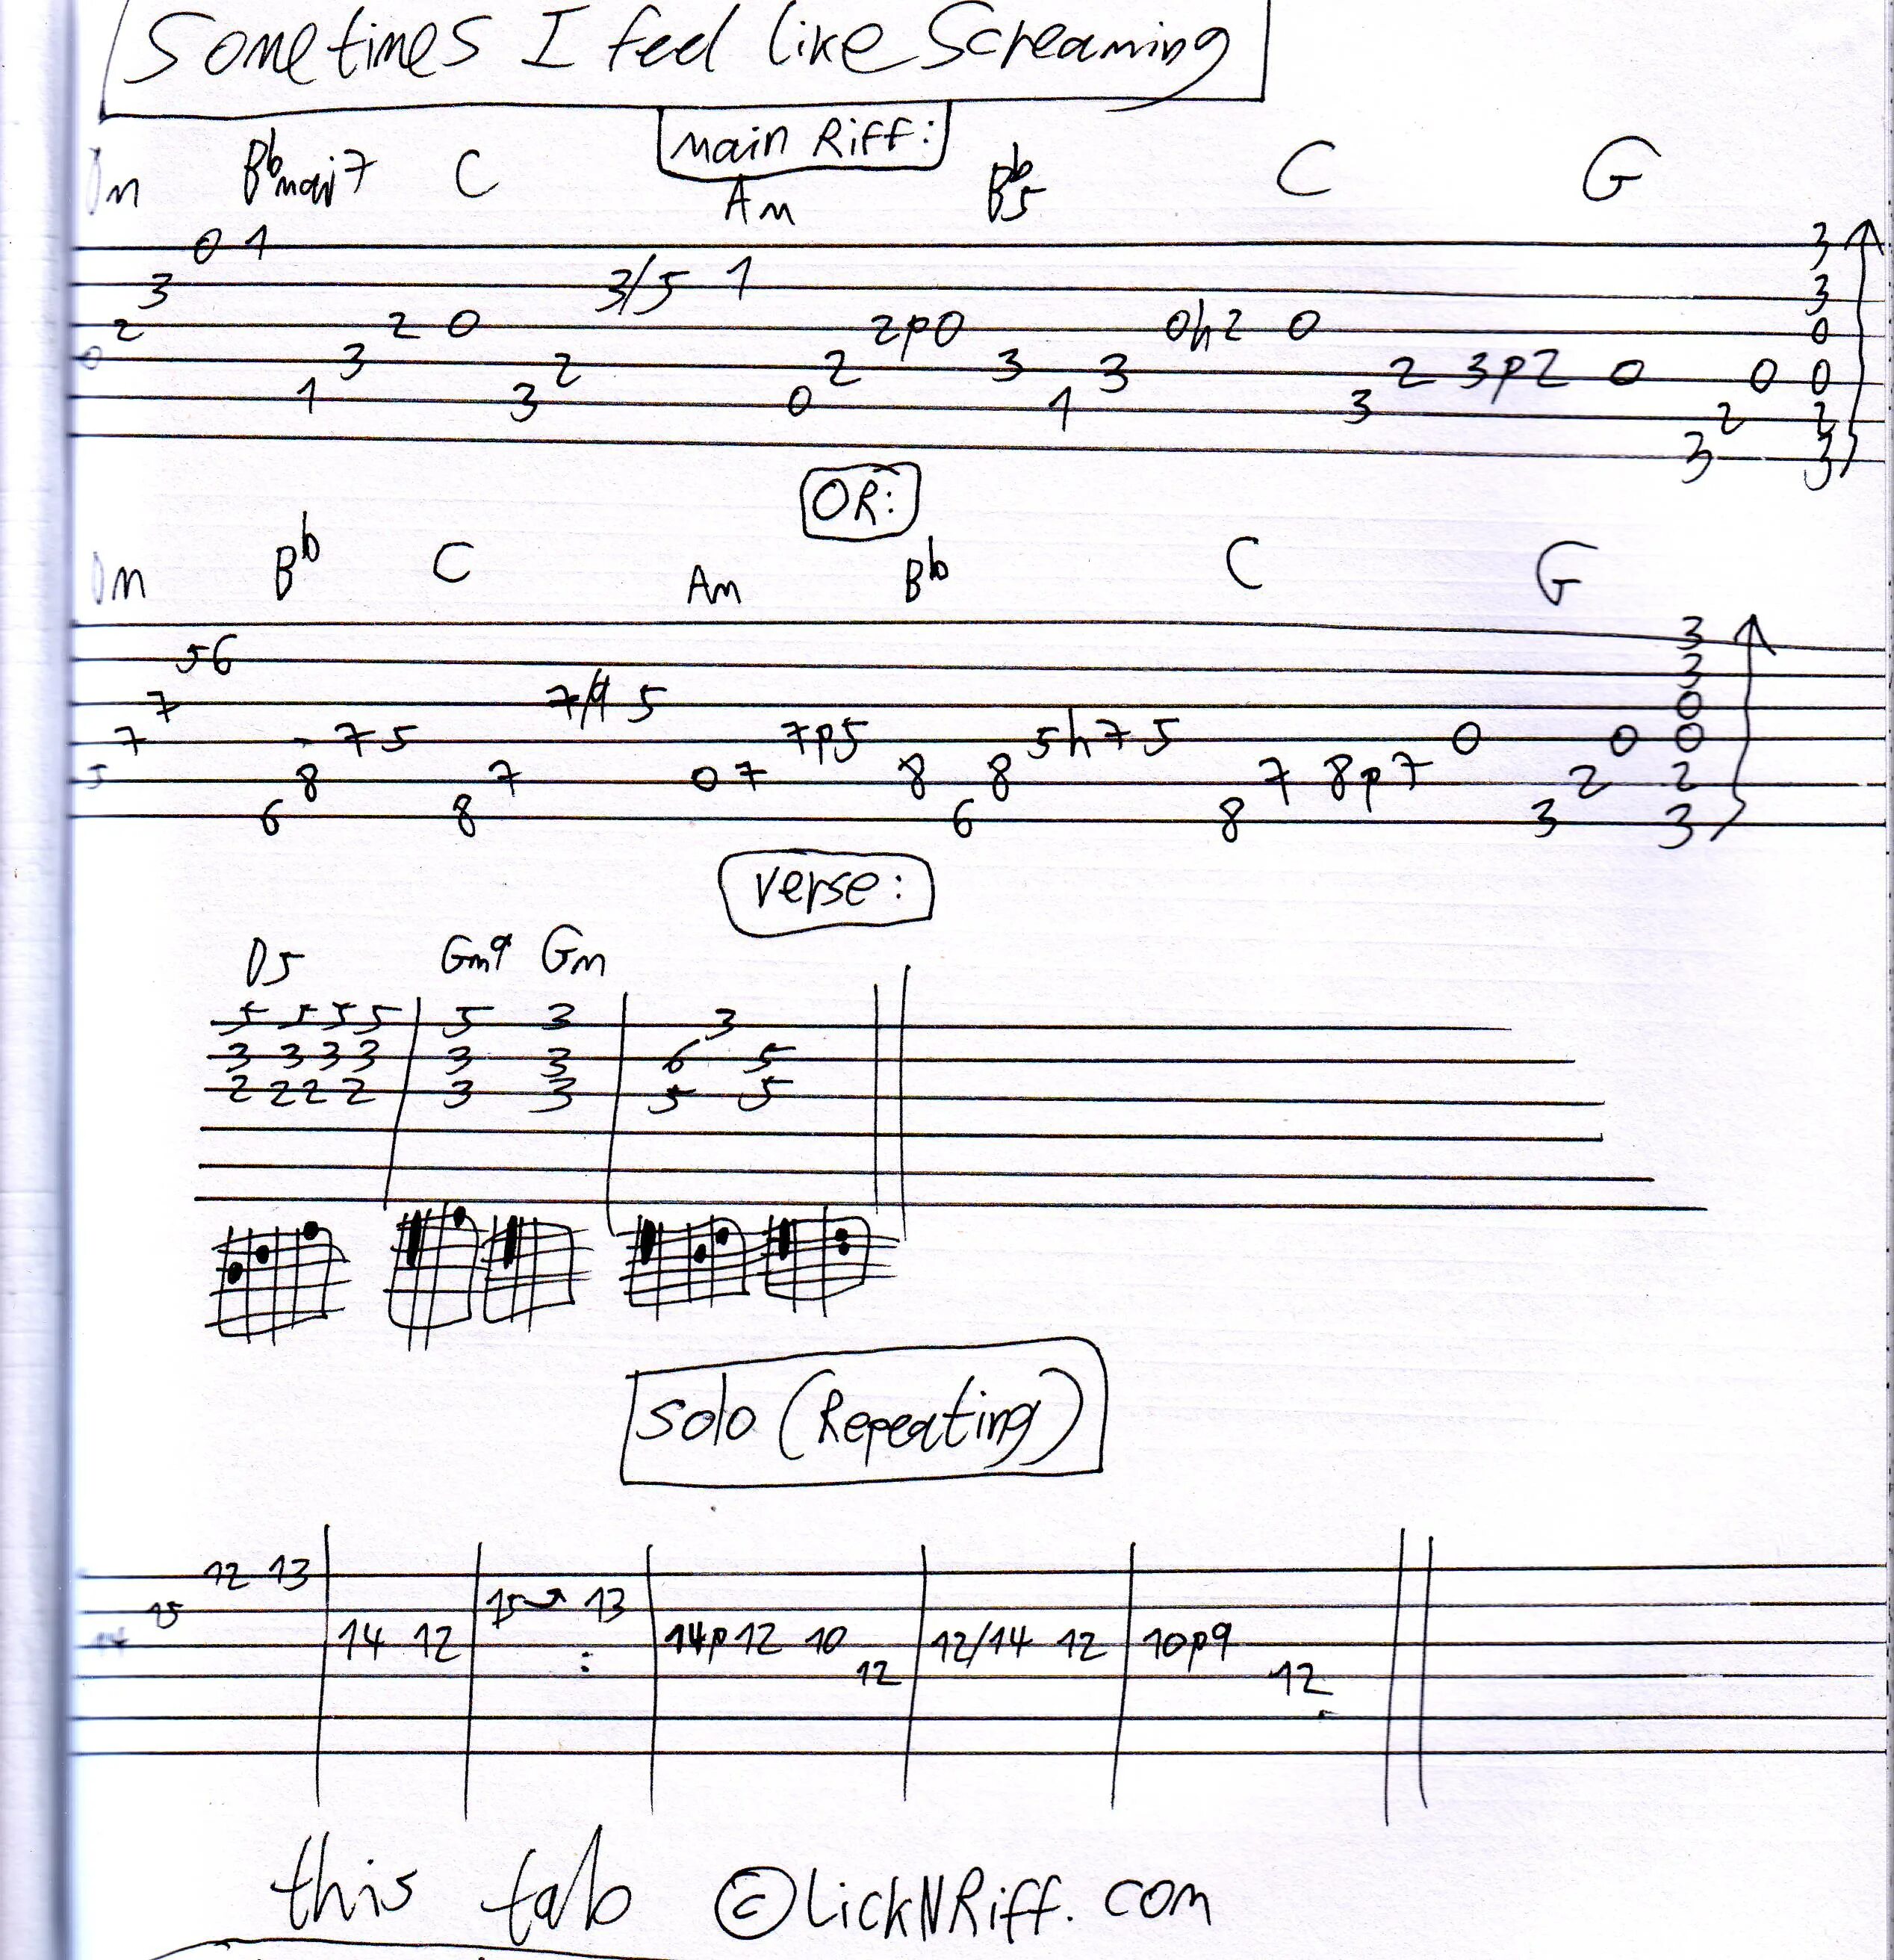 Sometimes I feel like Screaming
Main Riff:
Dm Bbmaj7 C Am Bb5 C G
0 1 3
3 3/5 1 3
2 2 0 2p0 0h2 0 0
0 3 2 2 3 3 2 3p2 0 0 0
1 3 0 1 3 2 2
3 3
OR:
Dm Bb C Am Bb C G
3
5 6 3
7 7/9 5 0
7 7 5 7p5 5h7 5 0 0 0
5 8 7 0 7 8 8 7 8p7 2 2
6 8 6 8 3 3
Verse:
D5 Gm9 Gm
5 5 5 5 5 3 3
3 3 3 3 3 3 6 5
2 2 2 2 3 3 5 5
Solo (Repeating)
12 13
15 15 13
14 14 12 14p12 10 12/14 12 10p9
12 12
this tab © LickNRiff.com